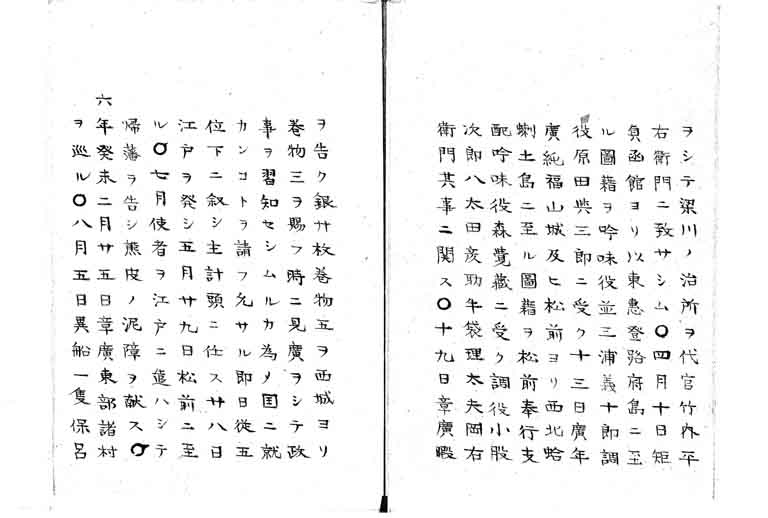 ヲシテ梁川ノ治所ヲ代官竹内平
右衛門ニ致サシム〇四月十日矩
貞函館ヨリ以東惠登路府島ニ至
ル圖籍ヲ吟味役並三浦義十郎調
役原田典三郎ニ受ク十三日廣年
廣純福山城及ヒ松前ヨリ西北蛤
蜊土島ニ至ル圖籍ヲ松前奉行支
配吟味役森覺藏ニ受ク調役小股
次郎八太田彦助牛袋理太夫岡右
衛門其事ニ関ス〇十九日章廣暇
ヲ告ク銀廿枚巻物五ヲ西城ヨリ
巻物三ヲ賜フ時ニ見廣ヲシテ政
事ヲ習知セシムルカ為メ国ニ就
カンコトヲ請フ允サル即日従五
位下ニ叙シ主計頭ニ任ス廿八日
江戸ヲ発シ五月廿九日松前ニ至
ル〇七月使者ヲ江戸ニ遣ハシテ
帰藩ヲ告シ熊皮ノ泥障ヲ献ス〇
六年癸未二月廿五日章廣東部諸村
ヲ巡ル〇八月五日異船一隻保呂